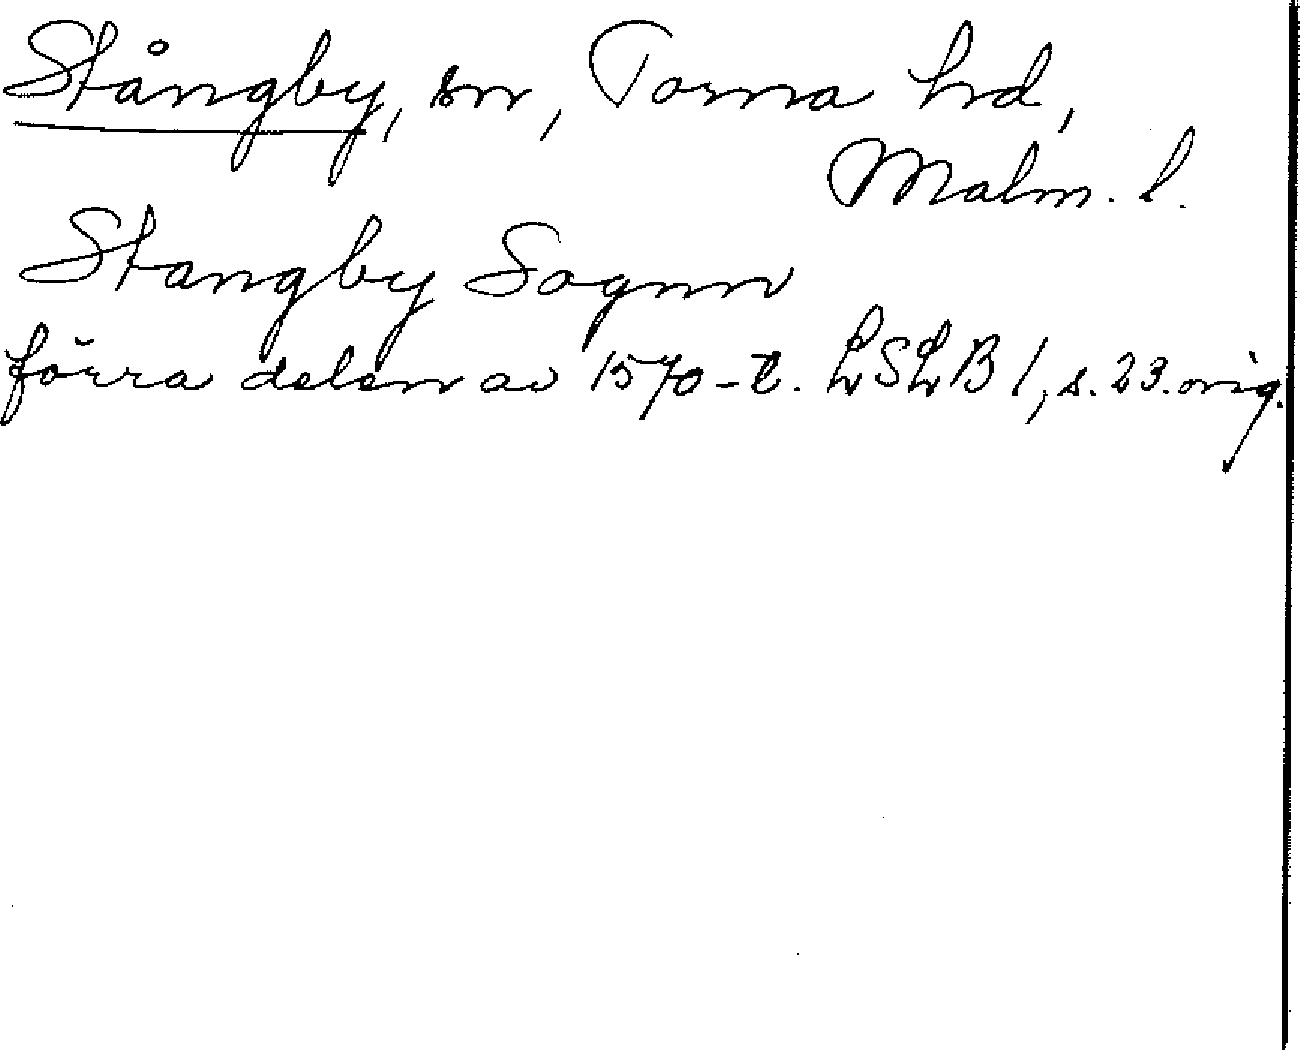 Stångby, sn, Torna hd,
Malm. l.
Stangby Sognn
förra delen av 1570-t. LSLB 1, s. 23. orig.